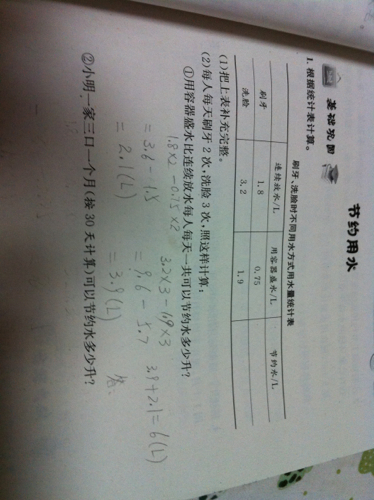 节约用水
基础巩固
1. 根据统计表计算。
刷牙、洗脸时不同用水方式用水量统计表
连续放水/L 用容器盛水/L 节约水/L
刷牙 1.8 0.75
洗脸 3.2 1.9
(1)把上表补充完整。
(2)每人每天刷牙2次,洗脸3次,照这样计算:
①用容器盛水比连续放水每人每天一共可以节约水多少升?
1.8×2-0.75×2 3.2×3-1.9×3 3.9+2.1=6(L)
=3.6-1.5 =9.6-5.7
=2.1(L) =3.9(L) 答、
②小明一家三口一个月(按30天计算)可以节约水多少升?